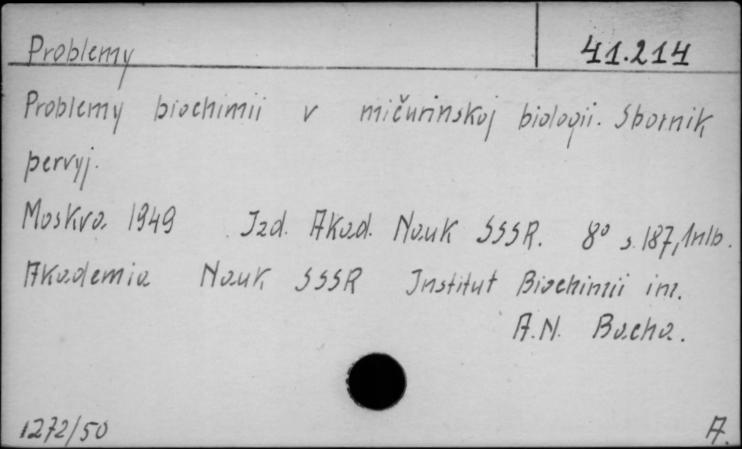 Problemy 41.214
Problemy biochimii v mičurinskoj biologii. Sbornik
pervyj.
Moskva 1949 Izd. Akad. Nauk SSSR. 8° s. 187, 1nlb.
Akademia Nauk SSSR Institut Biochimii im.
A.N. Bacha.
1272/50 A.